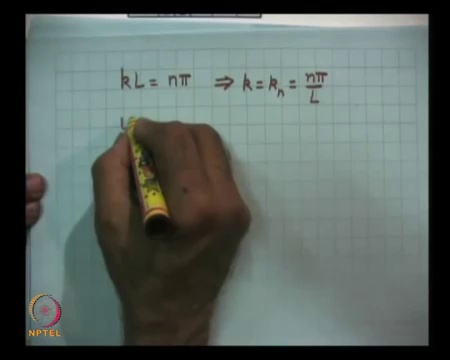 kL = nπ ⇒ k = kₙ = nπ/L
NPTEL